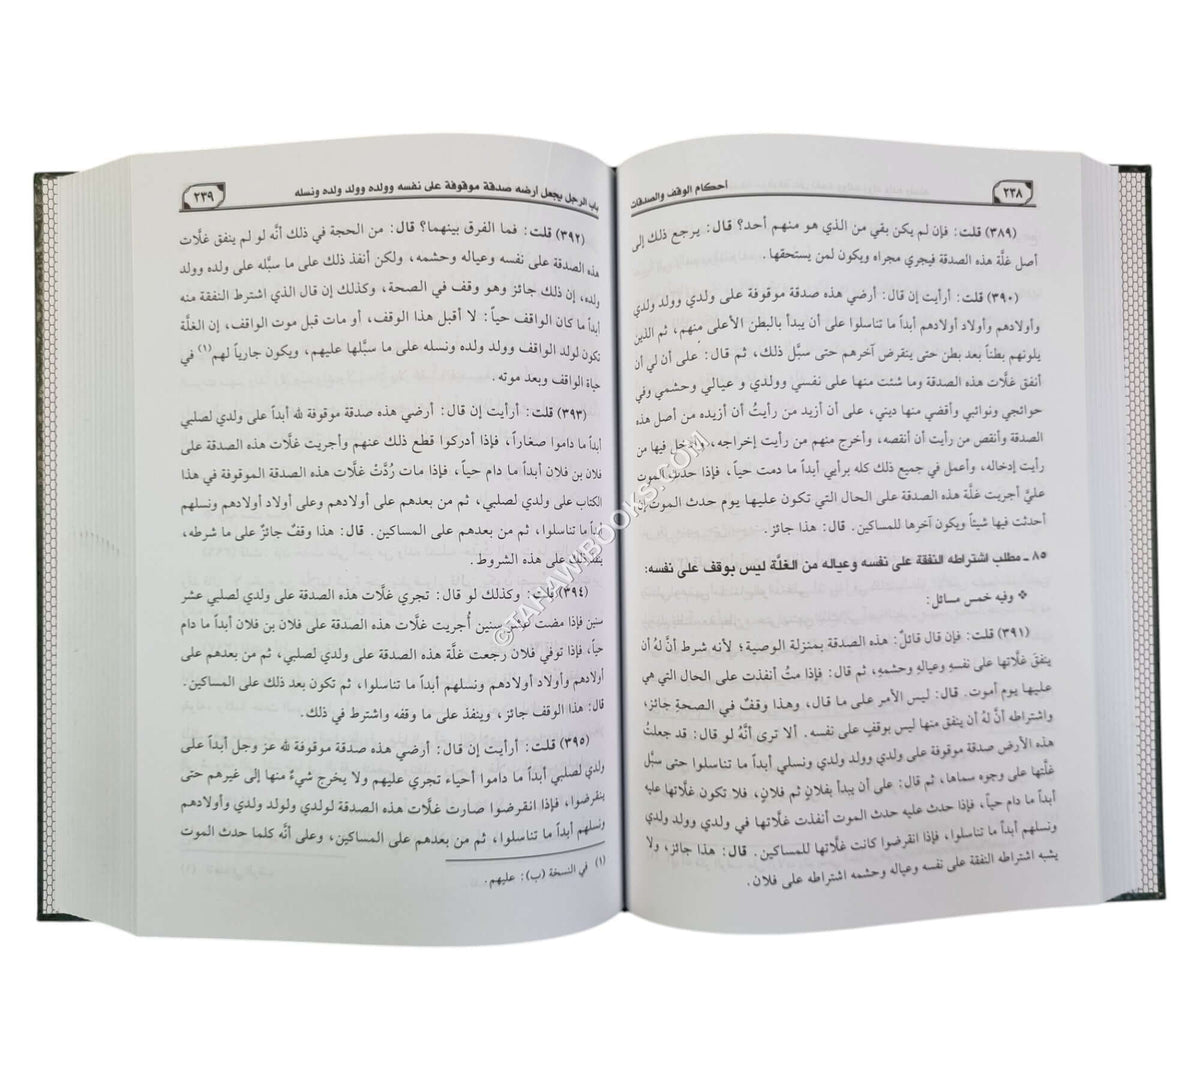 ٢٣٨
أحكام الوقف والصدقات
(٣٨٩) قلت: فإن لم يكن بقي من الذي هو منهم أحد؟ قال: يرجع ذلك إلى
أصل غلَّة هذه الصدقة فيجري مجراه ويكون لمن يستحقها.
(٣٩٠) قلت: أرأيت إن قال: أرضي هذه صدقة موقوفة على ولدي وولد ولدي
وأولادهم وأولاد أولادهم أبداً ما تناسلوا على أن يبدأ بالبطن الأعلى منهم، ثم الذين
يلونهم بطناً بعد بطن حتى ينقرض آخرهم حتى سبَّل ذلك، ثم قال: على أن لي أن
أنفق غلَّات هذه الصدقة وما شئت منها على نفسي وولدي و عيالي وحشمي وفي
حوائجي ونوائبي وأقضي منها ديني، على أن أزيد من رأيتُ أن أزيده من أصل هذه
الصدقة وأنقص من رأيت أن أنقصه، وأخرج منهم من رأيت إخراجه، وأدخل فيها من
رأيت إدخاله، وأعمل في جميع ذلك كله برأيي أبداً ما دمت حياً، فإذا حدث الموت
عليَّ أجريت غلَّة هذه الصدقة على الحال التي تكون عليها يوم حدث الموت إن
أحدثت فيها شيئاً ويكون آخرها للمساكين. قال: هذا جائز.
٨٥ ـ مطلب اشتراطه النفقة على نفسه وعياله من الغلَّة ليس بوقف على نفسه:
❖ وفيه خمس مسائل:
(٣٩١) قلت: فإن قال قائلٌ: هذه الصدقة بمنزلة الوصية؛ لأنه شرط أنَّ لهُ أن
ينفق غلَّاتها على نفسهِ وعيالهِ وحشمهِ، ثم قال: فإذا متُ أنفذت على الحال التي هي
عليها يوم أموت. قال: ليس الأمر على ما قال، وهذا وقفٌ في الصحةِ جَائز،
واشتراطه أنَّ لهُ أن ينفق منها ليس بوقفٍ على نفسه. ألا ترى أنَّهُ لو قال: قد جعلتُ
هذه الأرض صدقة موقوفة على ولدي وولد ولدي ونسلي أبداً ما تناسلوا حتى سبَّل
غلَّتها على وجوه سماها، ثم قال: على أن يبدأ بفلانٍ ثم فلانٍ، فلا تكون غلَّاتها عليه
أبداً ما دام حياً، فإذا حدث عليه حدث الموت أنفذت غلَّاتها في ولدي وولد ولدي
ونسلهم أبداً ما تناسلوا، فإذا انقرضوا كانت غلَّاتها للمساكين. قال: هذا جائز، ولا
يشبه اشتراطه النفقة على نفسه وعياله وحشمه اشتراطه على فلان.
باب الرجل يجعل أرضه صدقة موقوفة على نفسه وولده وولد ولده ونسله
٢٣٩
(٣٩٢) قلت: فما الفرق بينهما؟ قال: من الحجة في ذلك أنَّه لو لم ينفق غلَّات
هذه الصدقة على نفسه وعياله وحشمه، ولكن أنفذ ذلك على ما سبَّله على ولده وولد
ولده، إن ذلك جائز وهو وقف في الصحة، وكذلك إن قال الذي اشترط النفقة منه
أبداً ما كان الواقف حياً: لا أقبل هذا الوقف، أو مات قبل موت الواقف، إن الغلَّة
تكون لولد الواقف وولد ولده ونسله على ما سبَّلها عليهم، ويكون جارياً لهم(١) في
حياة الواقف وبعد موته.
(٣٩٣) قلت: أرأيت إن قال: أرضي هذه صدقة موقوفة لله أبداً على ولدي لصلبي
أبداً ما داموا صغاراً، فإذا أدركوا قطع ذلك عنهم وأجريت غلَّات هذه الصدقة على
فلان بن فلان أبداً ما دام حياً، فإذا مات رُدَّتْ غلَّات هذه الصدقة الموقوفة في هذا
الكتاب على ولدي لصلبي، ثم من بعدهم على أولادهم وعلى أولاد أولادهم ونسلهم
أبداً ما تناسلوا، ثم من بعدهم على المساكين. قال: هذا وقفٌ جائزٌ على ما شرطه،
ينفذ ذلك على هذه الشروط.
(٣٩٤) قلت: وكذلك لو قال: تجري غلَّات هذه الصدقة على ولدي لصلبي عشر
سنين فإذا مضت عشر سنين أُجريت غلَّات هذه الصدقة على فلان بن فلان أبداً ما دام
حياً، فإذا توفي فلان رجعت غلَّة هذه الصدقة على ولدي لصلبي، ثم من بعدهم على
أولادهم وأولاد أولادهم ونسلهم أبداً ما تناسلوا، ثم تكون بعد ذلك على المساكين.
قال: هذا الوقف جائز، وينفذ على ما وقفه واشترط في ذلك.
(٣٩٥) قلت: أرأيت إن قال: أرضي هذه صدقة موقوفة لله عز وجل أبداً على
ولدي لصلبي أبداً ما داموا أحياء تجري عليهم ولا يخرج شيءٌ منها إلى غيرهم حتى
ينقرضوا، فإذا انقرضوا صارت غلَّات هذه الصدقة لولدي ولولد ولدي وأولادهم
ونسلهم أبداً ما تناسلوا، ثم من بعدهم على المساكين، وعلى أنَّه كلما حدث الموت
(١) في النسخة (ب): عليهم.
©TAHAWIBOOKS.COM